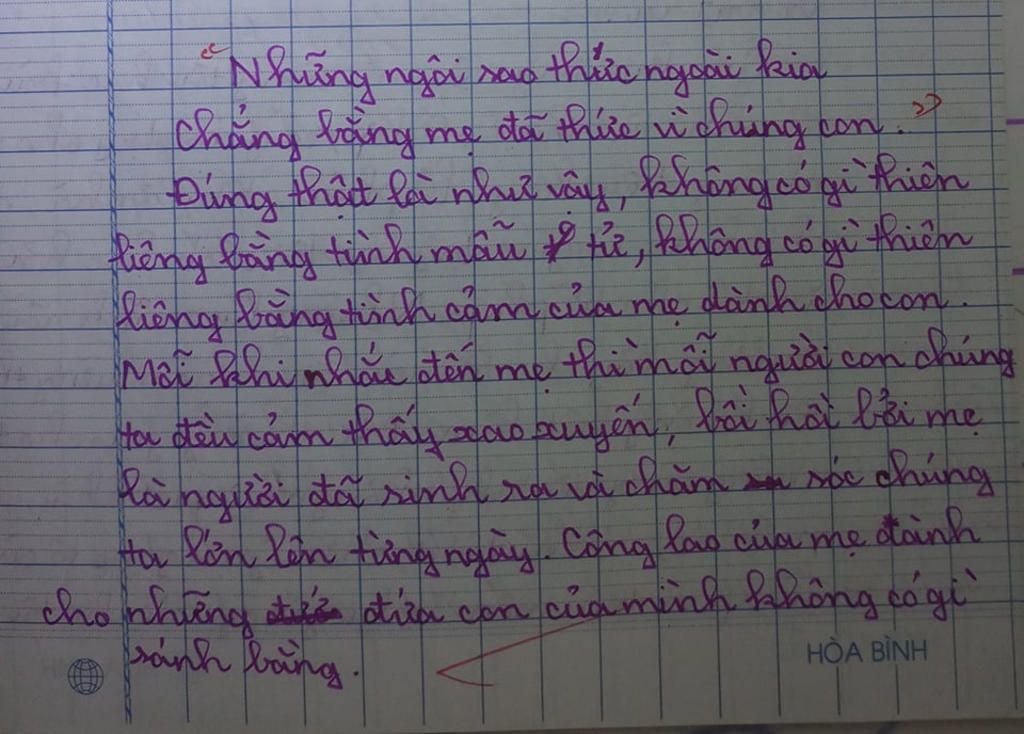 "Những ngôi sao thức ngoài kia
Chẳng bằng mẹ đã thức vì chúng con."
Đúng thật là như vậy, không có gì thiên
liêng bằng tình mẫu tử, không có gì thiên
liêng bằng tình cảm của mẹ dành cho con.
Mỗi khi nhắc đến mẹ thì mỗi người con chúng
ta đều cảm thấy xao xuyến, bồi hồi bởi mẹ
là người đã sinh ra và chăm sóc chúng
ta lớn lên từng ngày. Công lao của mẹ dành
cho những đứa con của mình không có gì
sánh bằng.
HÒA BÌNH